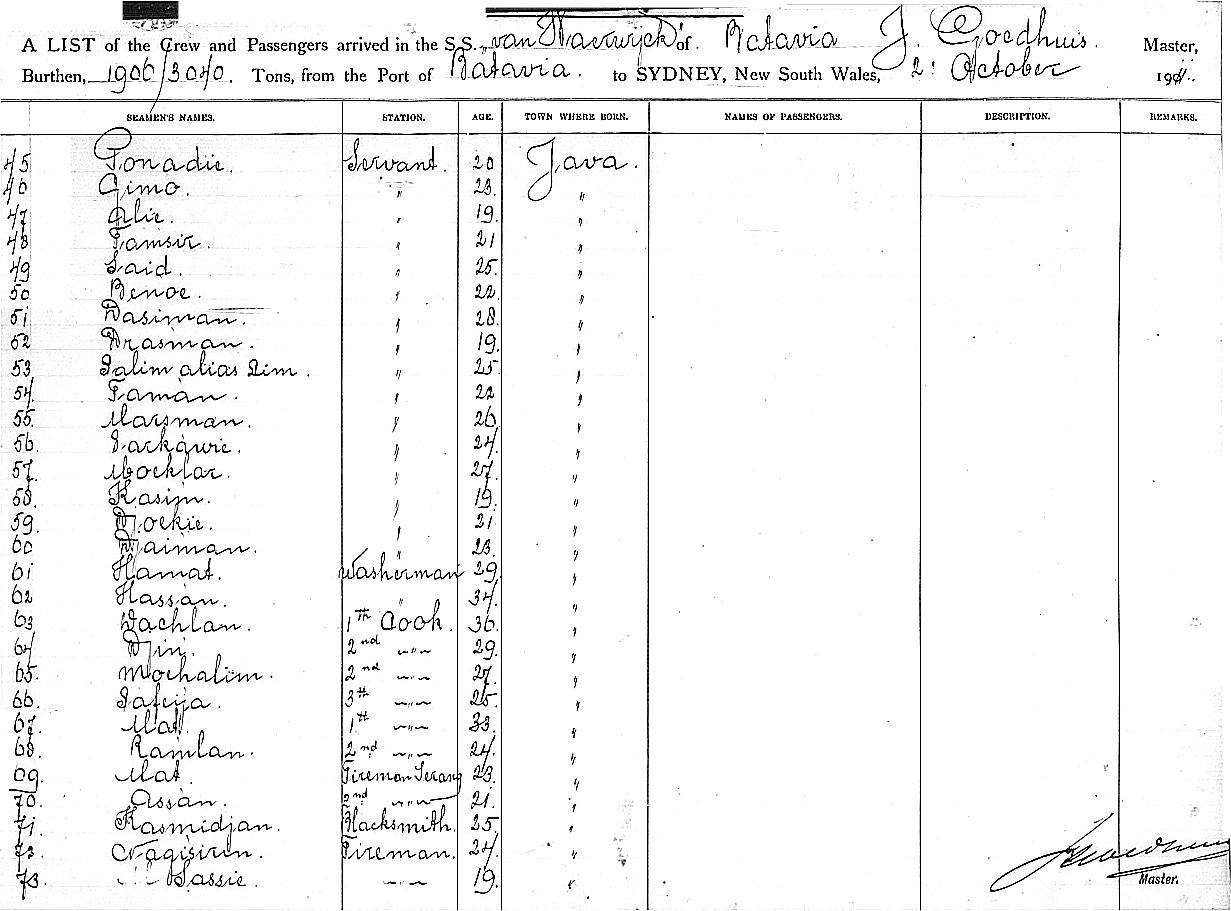 A LIST of the Crew and Passengers arrived in the S.S. "van Waerwijck" of Batavia J. Goedhuis. Master,
Burthen, 1906/3040. Tons, from the Port of Batavia. to SYDNEY, New South Wales, 2 October 191
SEAMEN'S NAMES. STATION. AGE. TOWN WHERE BORN. NAMES OF PASSENGERS. DESCRIPTION. REMARKS.
45 Ponadie. Servant. 20 Java.
46 Gimo. " 23. "
47 Alie. " 19. "
48 Tamsir. " 21 "
49 Said. " 25. "
50 Benoe. " 22 "
51 Dasiman. " 28 "
52 Drasman. " 19. "
53 Salim alias Siem. " 25 "
54 Taman. " 22 "
55. Marsman. " 26 "
56 Sarkawie. " 24 "
57. Mochtar. " 27 "
58 Kasim. " 19. "
59. Djoekie. " 21 "
60 Djaiman. " 23. "
61 Hamat. Washerman 29 "
62 Hassan. " 34 "
63 Dachlan. 1th Cook. 36. "
64 Djin. 2nd " 29. "
65. Mochalim. 2nd " 27 "
66 3th " 25 "
67. Mat. 1th " 33 "
68. Ramlan. 2nd " 24. "
69. Mat. Fireman Serang 23. "
70. Assan. 2nd " 21. "
71 Kasmidjan. Blacksmith. 25 "
72 Fireman. 24 "
73. Sassie. " 19. "
Master.